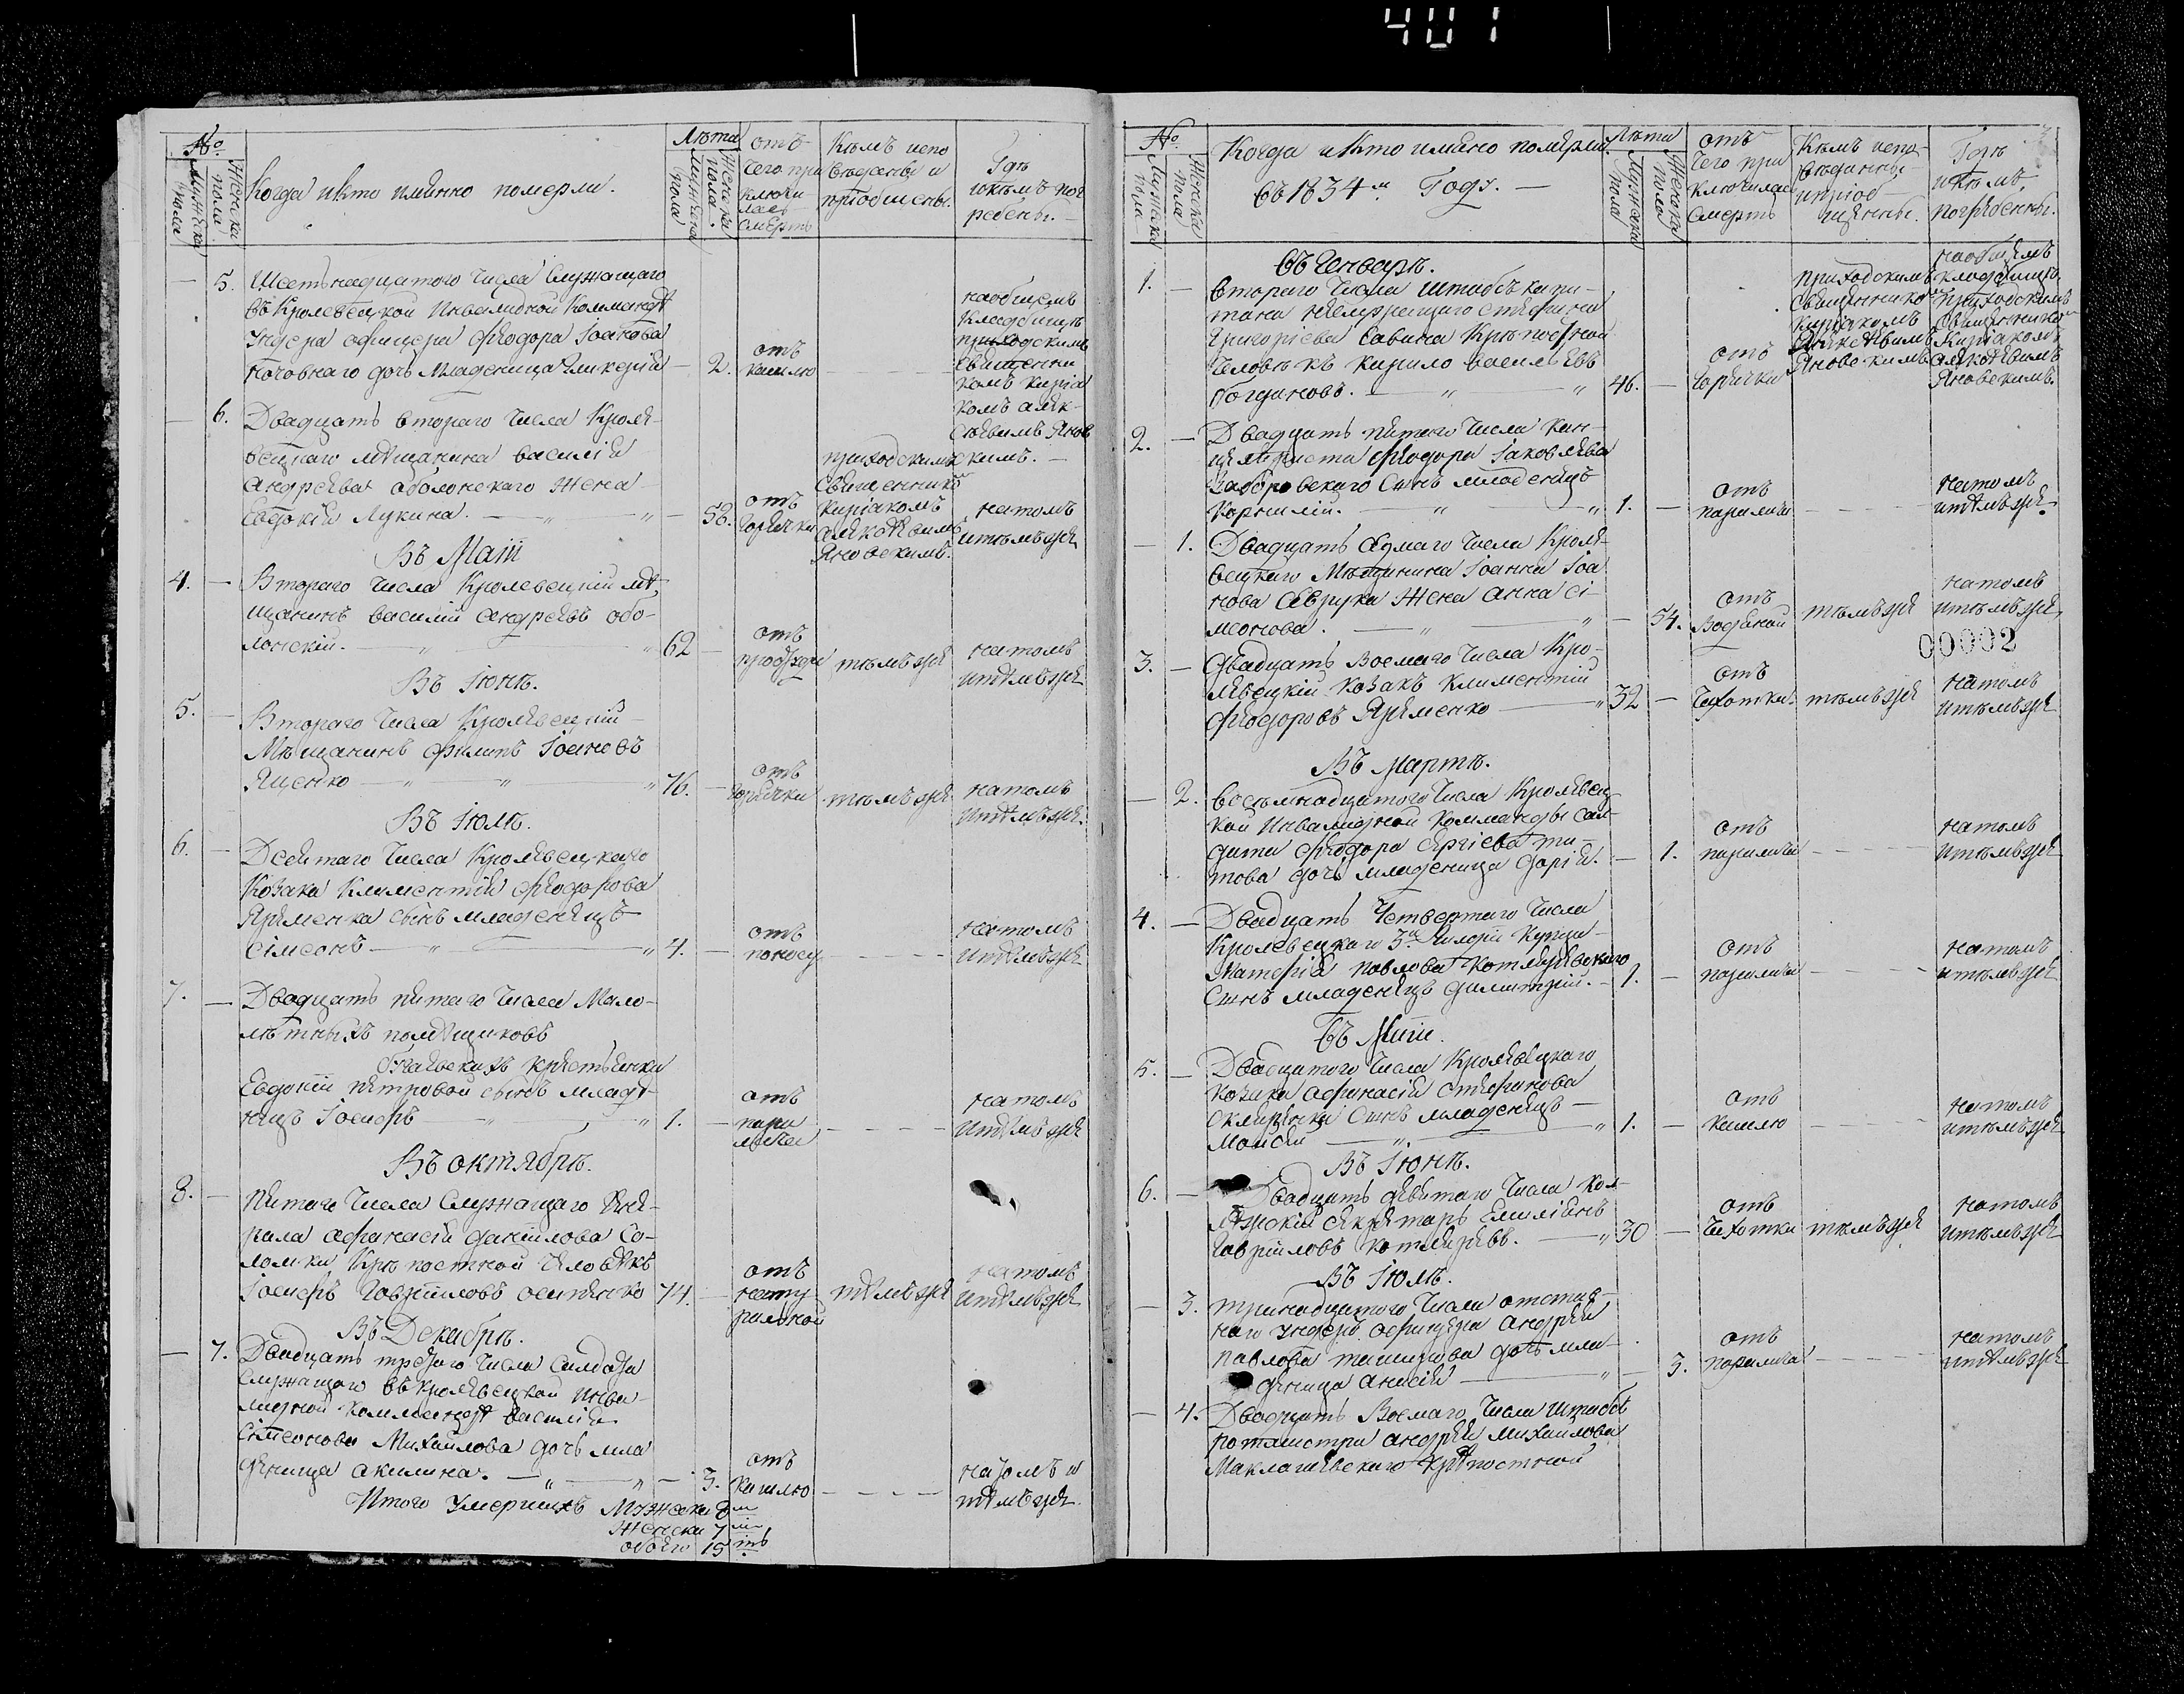 401
№
Мужеска пола
Женска пола
Когда и кто имянно померли.
Лѣта
Мужеска пола
Женска пола
отъ чего приключилась смерть
Кѣмъ исповѣданы и пріобщены.
Гдѣ и кѣмъ погребены.
5. Шестьнадцатого числа служащаго
въ Кролевецкой Инвалидной Коммандѣ
ундера офицера Феодора Іоакова
дочь Младеница Гликерія — 2.
отъ кашлю
на общемъ
кладбищѣ
приходскимъ
священни
комъ Киріа
комъ Алек
сѣевимъ Янов
скимъ. —
6. Двадцать втораго числа Кроле-
вецкаго мѣщанина Василія
Андреева Оболонскаго жена
Евдокія Лукина. — „ — „ — 58.
отъ горячки
приходскимъ
священнико
Киріакомъ
Алексѣевимъ
Яновскимъ.
на томъ
и тѣмъ же
Въ Маіи
4. — Втораго числа Кролевецкій мѣ-
щанинъ Василій Андреевъ Обо-
лонскій. — „ 62 —
отъ
тѣмъ же
на томъ
и тѣмъ же
Въ Іюнѣ.
5. — Втораго числа Кролевецкій
Мѣщанинъ Филипъ Іоановъ
Яценко — „ — „ — „ 76. —
отъ горячки
тѣмъ же
на томъ
и тѣмъ же.
Въ Іюлѣ.
6. — Десятаго числа Кролевецкаго
Козака Климентія Феодорова
Яременка сынъ младенецъ
Сімеонъ — „ — „ 4. —
отъ поносу
на томъ
и тѣмъ же
7. — Двадцать пятаго числа Мало-
лѣтныхъ помѣщиковъ
крестьянки
Евдокіи Петровой сынъ младе-
нецъ Іосифъ — „ — „ 1. —
отъ паралича
на томъ
и тѣмъ же
Въ октябрѣ.
8. — Пятаго числа служащаго
Афанасія Даніилова Со-
ломки Крѣпостной человѣкъ
Іосифъ Гавріиловъ 74. —
отъ натуральной
тѣмъ же
на томъ
и тѣмъ же
Въ Декабрѣ.
— 7. Двадцать третого числа Салдата
служащаго въ Кролевецкой Инва-
лидной Коммандѣ Василія
Сімеонова Михайлова дочь мла
деница Акилина. — „ — „ — 3.
отъ кашлю
на томъ и
тѣмъ же.
Итого умершихъ Мужеска 8
Женска 7
обоего 15
№
Мужеска пола
Женска пола
Когда и кто имяно померли.
въ 1834м Году. —
Лѣта
Мужеска пола
Женска пола
отъ чего приключилась смерть
Кѣмъ исповѣданны и пріобщенны.
Гдѣ и кѣмъ, погребенны.
Въ Генварѣ.
1. — Втораго числа штабсъ капи-
тана Стефана
Григоріева Савича Крѣпостной
человѣкъ Кирило Васильевъ
Богдановъ. — „ — „ 46. —
отъ горячки
приходскимъ
священником
Киріакомъ
Алексѣевимъ
Яновскимъ
на общемъ
кладбищѣ,
приходскимъ
священником
Киріакомъ
Алексѣевимъ
Яновскимъ.
2. — Двадцать пятаго числа Кан-
целяриста Феодора Іаковлева
Забаровскаго сынъ младенецъ
Корнилій. — „ — „ 1. —
отъ паралича
на томъ
и тѣмъ же.
— 1. Двадцать седмаго числа Кроле-
вецкаго Мѣщанина Іоанна Іоа
нова Саврука жена Анна Сі-
меонова. — „ — „ — 54.
отъ водяной
тѣмъ же
на томъ
и тѣмъ же,
00002
3. — Двадцать восмаго числа Кро-
левецкій козакъ Климентій
Феодоровъ Яременко — „ 32 —
отъ чахотки.
тѣмъ же
на томъ
и тѣмъ же
Въ Мартѣ.
— 2. Восемнадцатого числа Кролевец
кой Инвалидной Комманды сал-
дата Феодора Сергіева Ти-
това дочь младеница Дарія. — 1.
отъ паралича
на томъ
и тѣмъ же
4. — Двадцать Четвертаго числа
Кролевецкаго 3й Гилдіи Купца
Павлова Котляревского
сынъ младенецъ Димитрій. — 1. —
отъ паралича
на томъ
и тѣмъ же
Въ Маіи.
5. — Двадцатого числа Кролевецкаго
козака Афанасія Стефанова
сынъ младенецъ —
Моисей — „ — „ 1. —
отъ кашлю
на томъ
и тѣмъ же
Въ Іюнѣ.
6. — Двадцать девятаго числа Кол-
лежскій секретарь Емиліянъ
Гавріиловъ Котляревъ. — „ 30 —
отъ чахотки
тѣмъ же
на томъ
и тѣмъ же
Въ Іюлѣ.
— 3. Тринадцатого числа отстав-
наго ундеръ офицера Андрея
Павлова дочь мла-
деница Анисія — „ — 3.
отъ паралича
на томъ
и тѣмъ же
— 4. Двадцать Восмаго числа Штабсъ
ротмистра Андрея Михаилова
Маклашевскаго крѣпостной